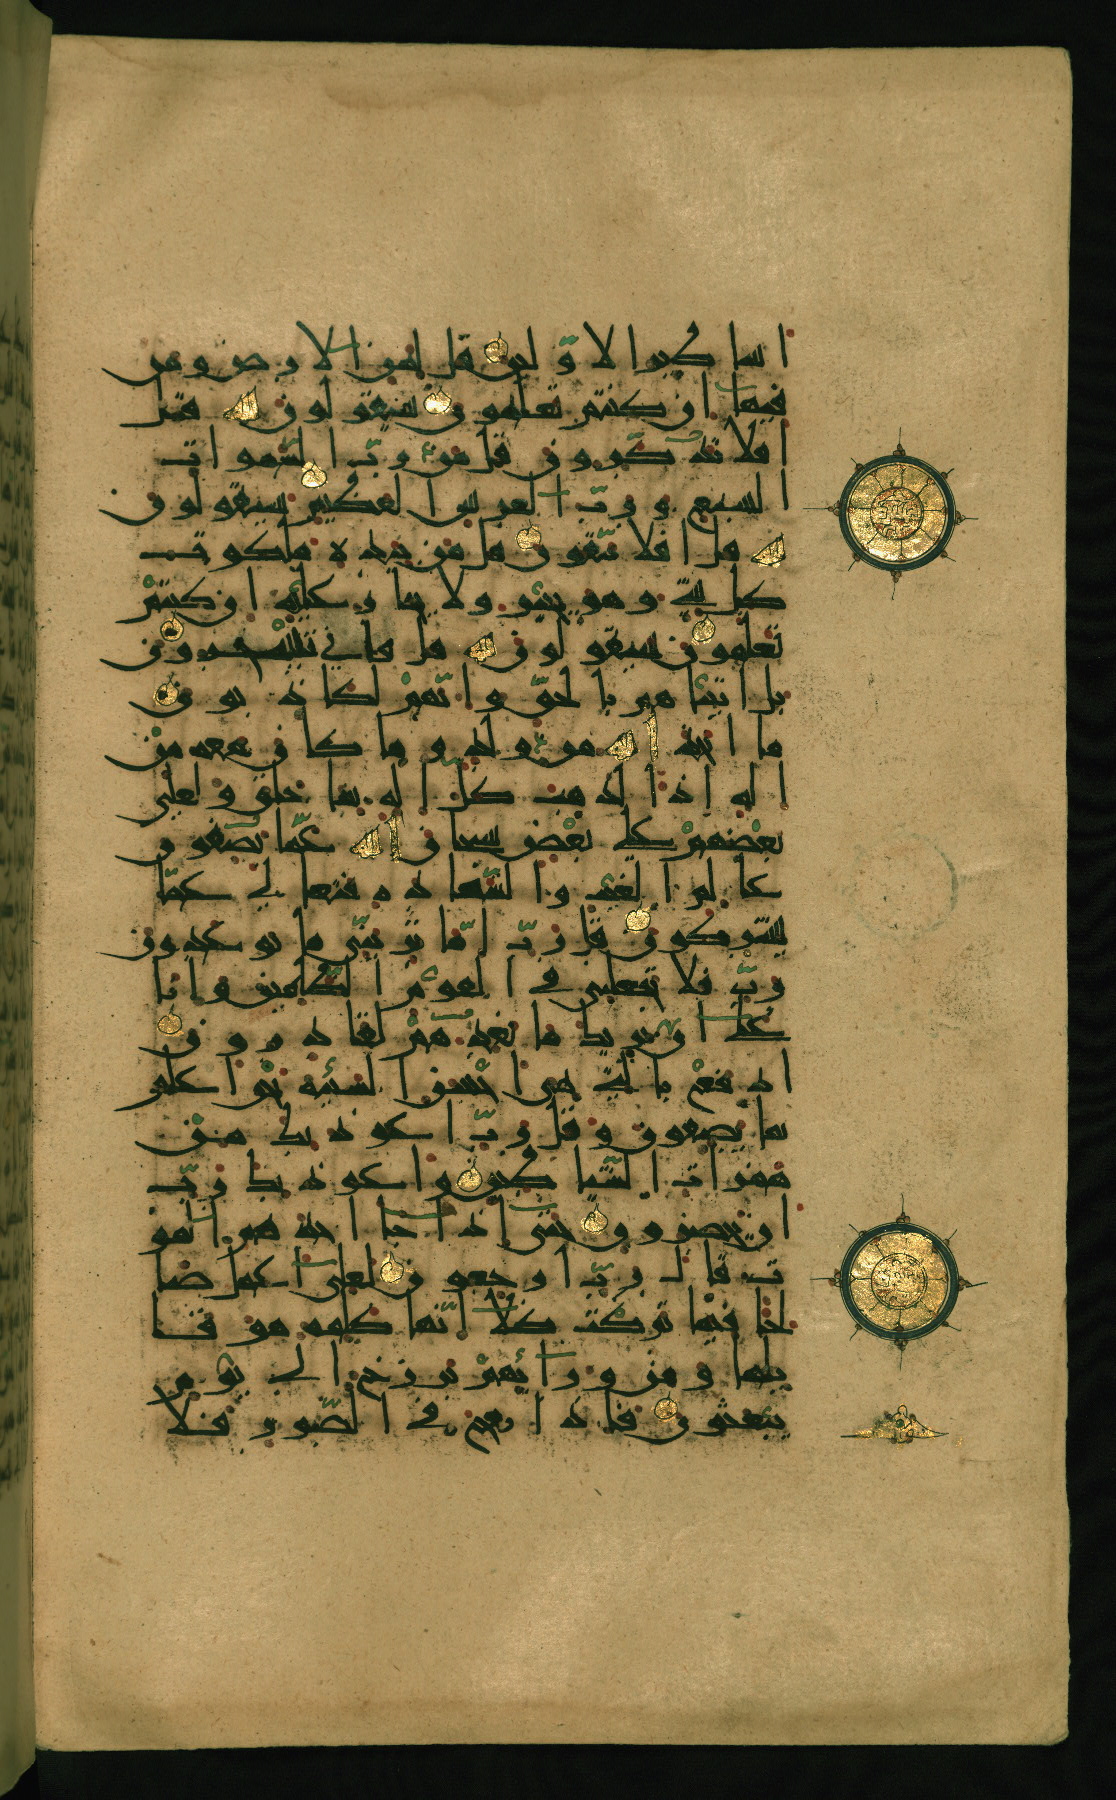 اساطير الاوّلين قل لمن الارض ومن
فيها ان كنتم تعلمون سيقولون لله قل
افلا تذكّرون قل من ربّ السّموات
السبع وربّ العرش العظيم سيقولون
لله قل افلا تتّقون قل من بيده ملكوت
كل شيء وهو يجير ولا يجار عليه ان كنتم
تعلمون سيقولون لله قل فانى تسحرون
بل اتيناهم بالحقّ وانّهم لكاذبون
ما اتخذ الله من ولد وما كان معه من
اله اذا لذهب كلّ اله بما خلق ولعلى
بعضهم على بعض سبحان الله عمّا يصفون
عالم الغيب والشّهادة فتعالى عمّا
يشركون قل ربّ امّا ترينّي ما يوعدون
ربّ فلا تجعلني في القوم الظّالمين وانا
على ان نريك ما نعدهم لقادرون
ادفع بالتي هي احسن السيئة نحن اعلم
بما يصفون وقل ربّ اعوذ بك من
همزات الشّياطين واعوذ بك ربّ
ان يحضرون حتّى اذا جا احدهم المو
ت قال ربّ ارجعون لعلى اعمل صا
لحا فيما تركت كلّا انّها كلمة هو قا
ئلها ومن ورائهم برزخ الى يوم
يبعثون فاذا نفخ في الصّور فلا